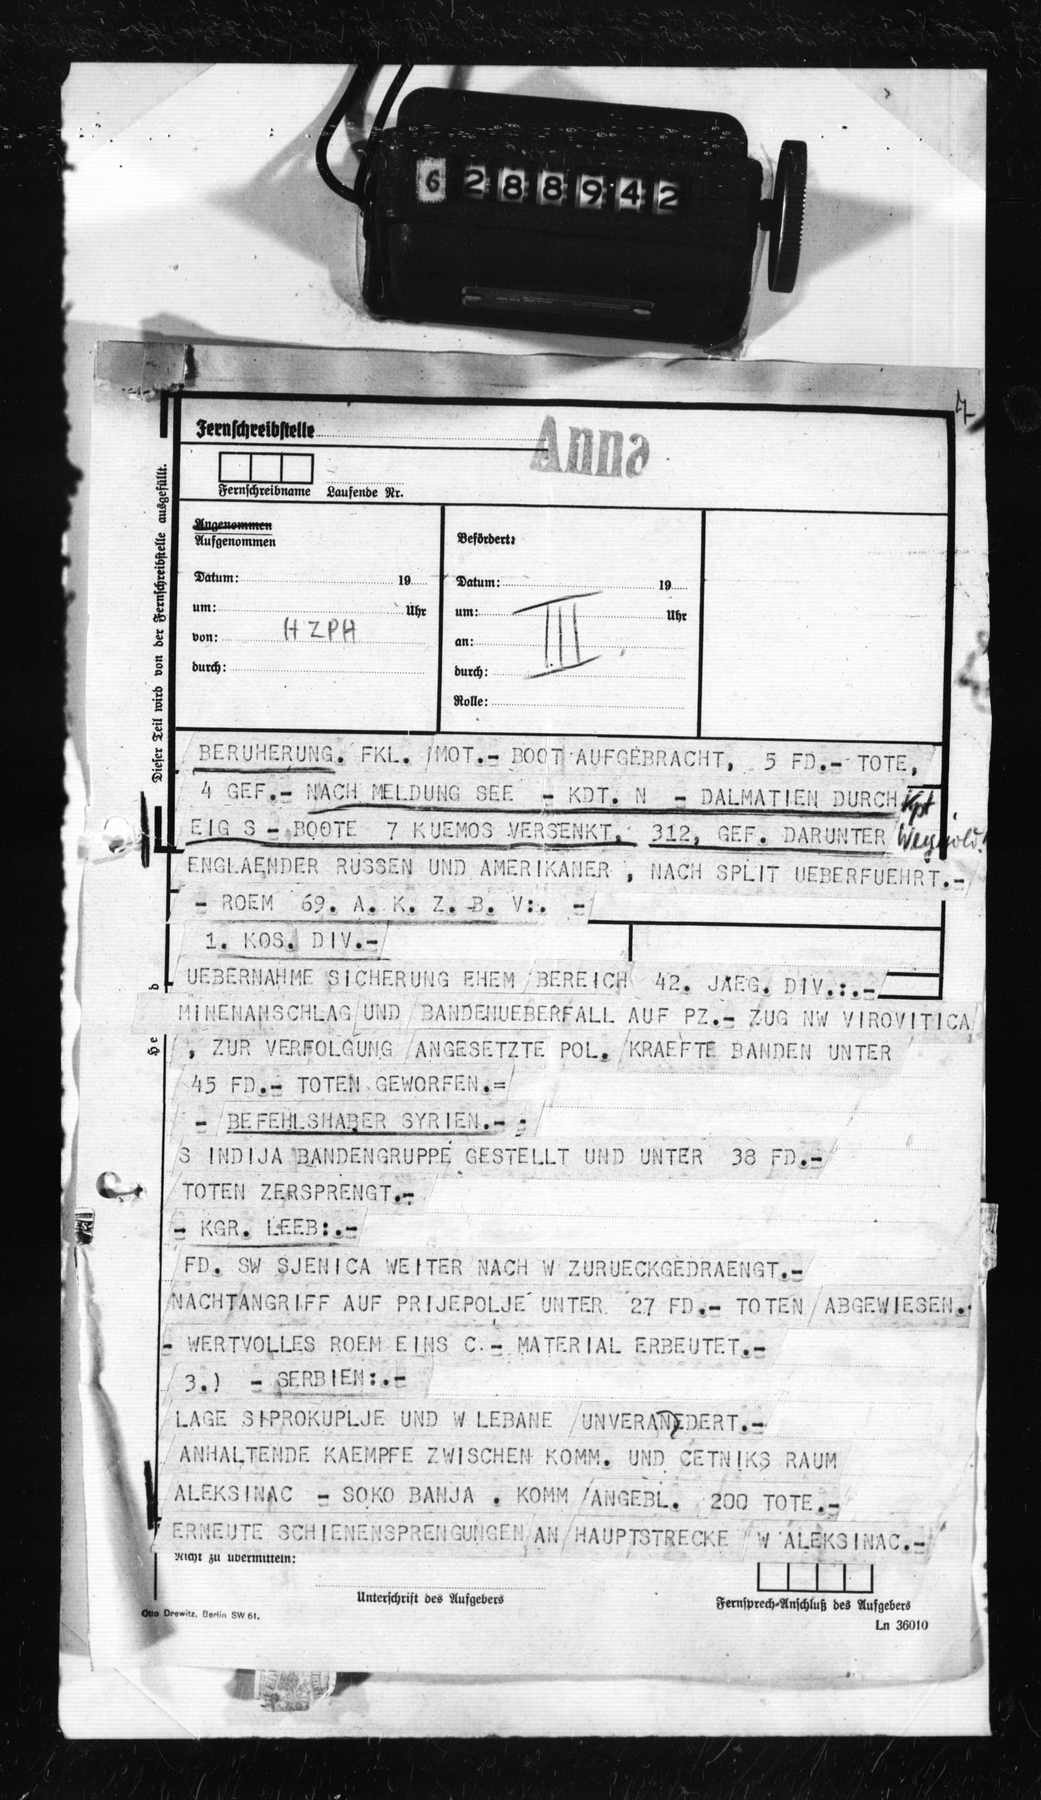 6288942
Fernschreibstelle
Anna
Fernschreibname Laufende Nr.
Angenommen
Aufgenommen
Datum: 19
um: Uhr
von: HZPH
durch:
Befördert:
Datum: 19
um: Uhr
an:
durch:
Rolle:
III
Dieser Teil wird von der Fernschreibstelle ausgefüllt.
BERUHERUNG. FKL. MOT.- BOOT AUFGEBRACHT, 5 FD.- TOTE,
4 GEF.- NACH MELDUNG SEE - KDT. N - DALMATIEN DURCH Kpt
EIG S - BOOTE 7 KUEMOS VERSENKT, 312, GEF. DARUNTER
ENGLAENDER RUSSEN UND AMERIKANER , NACH SPLIT UEBERFUEHRT.-
- ROEM 69. A. K. Z. B. V:. -
1. KOS. DIV.-
UEBERNAHME SICHERUNG EHEM BEREICH 42. JAEG. DIV.:.-
MINENANSCHLAG UND BANDENUEBERFALL AUF PZ.- ZUG NW VIROVITICA
, ZUR VERFOLGUNG ANGESETZTE POL. KRAEFTE BANDEN UNTER
45 FD.- TOTEN GEWORFEN.=
- BEFEHLSHABER SYRIEN.- :
S INDIJA BANDENGRUPPE GESTELLT UND UNTER 38 FD.-
TOTEN ZERSPRENGT.-
- KGR. LEEB:.-
FD. SW SJENICA WEITER NACH W ZURUECKGEDRAENGT.-
NACHTANGRIFF AUF PRIJEPOLJE UNTER 27 FD.- TOTEN ABGEWIESEN.
- WERTVOLLES ROEM EINS C.- MATERIAL ERBEUTET.-
3.) - SERBIEN:.-
LAGE SI PROKUPLJE UND W LEBANE UNVERANEDERT.-
ANHALTENDE KAEMPFE ZWISCHEN KOMM. UND CETNIKS RAUM
ALEKSINAC - SOKO BANJA . KOMM ANGEBL. 200 TOTE.-
ERNEUTE SCHIENENSPRENGUNGEN AN HAUPTSTRECKE W ALEKSINAC.-
Nicht zu übermitteln:
Unterschrift des Aufgebers
Fernsprech-Anschluß des Aufgebers
Otto Drewitz, Berlin SW 61.
Ln 36010